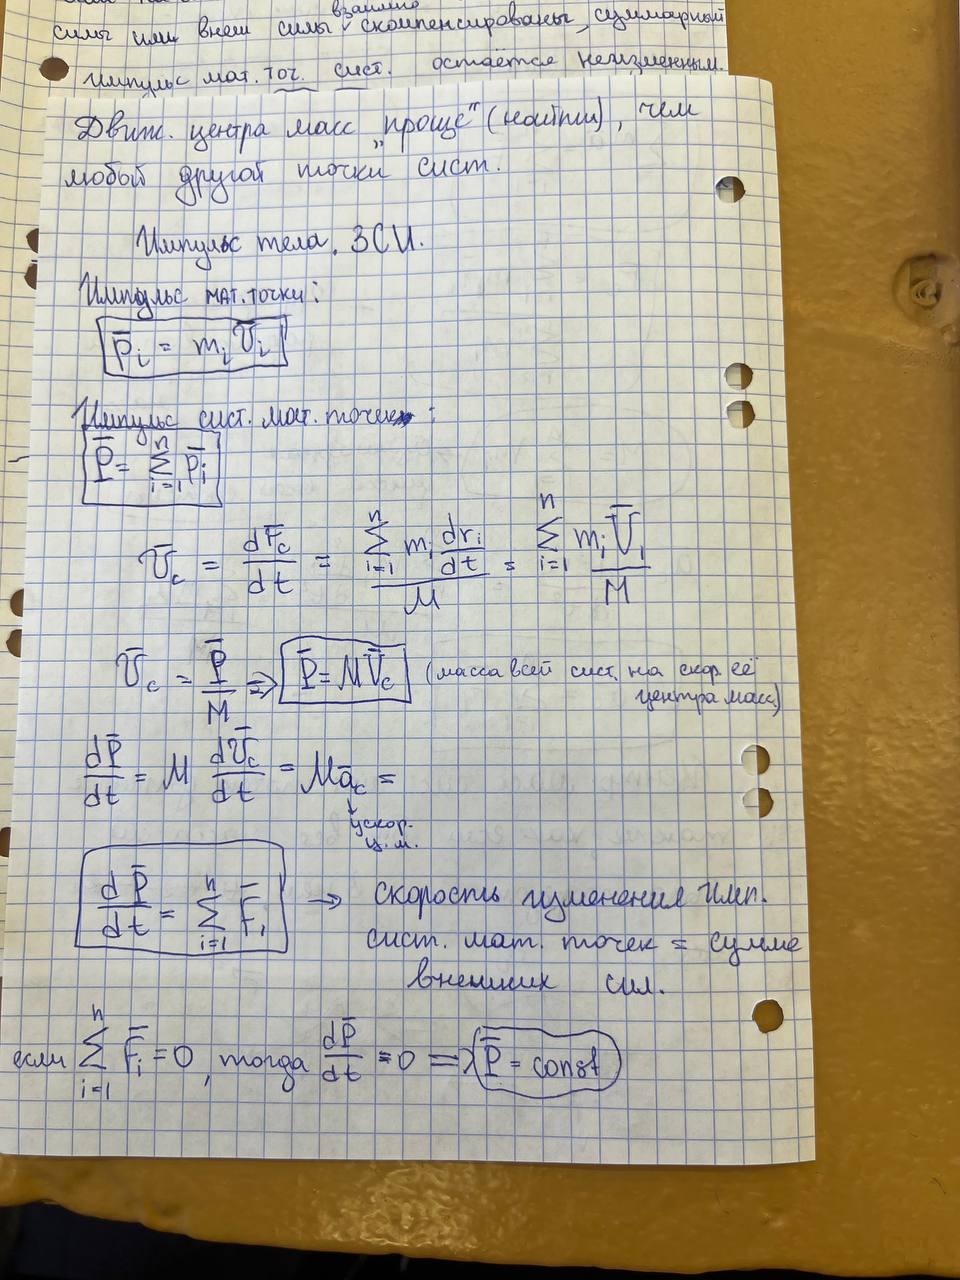 взаимно
силы или внеш силы скомпенсированы, суммарный
импульс мат. точ. сист. остаётся неизменным.
Движ. центра масс „проще" (найти), чем
любой другой точки сист.
Импульс тела. ЗСИ.
Импульс мат. точки:
p̄ᵢ = mᵢ v̄ᵢ
Импульс сист. мат. точек:
P̄ = ∑ⁿᵢ₌₁ p̄ᵢ
v̄c = dr̄c/dt = ∑ⁿᵢ₌₁ mᵢ drᵢ/dt / M = ∑ⁿᵢ₌₁ mᵢ v̄ᵢ / M
v̄c = P̄/M => P̄ = M v̄c (масса всей сист. на скор. её
центра масс)
dP̄/dt = M dv̄c/dt = M āc =
↓
ускор.
ц.м.
dP̄/dt = ∑ⁿᵢ₌₁ F̄ᵢ → скорость изменения имп.
сист. мат. точек = сумме
внешних сил.
если ∑ⁿᵢ₌₁ F̄ᵢ = 0, тогда dP̄/dt = 0 => P̄ = const